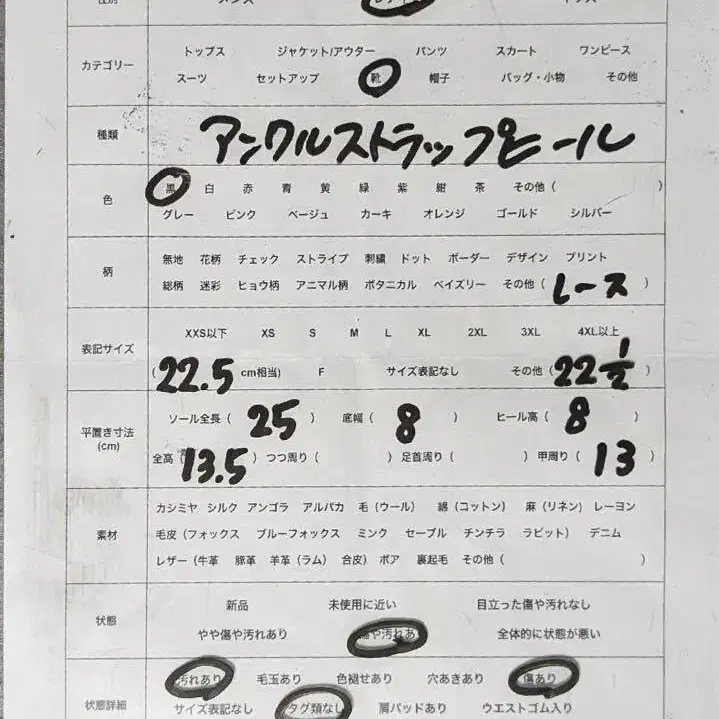 性別 メンズ レディース キッズ
カテゴリー
トップス ジャケット/アウター パンツ スカート ワンピース
スーツ セットアップ 靴 帽子 バッグ・小物 その他
種類 アンクルストラップヒール
色
黒 白 赤 青 黄 緑 紫 紺 茶 その他 ( )
グレー ピンク ベージュ カーキ オレンジ ゴールド シルバー
柄
無地 花柄 チェック ストライプ 刺繍 ドット ボーダー デザイン プリント
総柄 迷彩 ヒョウ柄 アニマル柄 ボタニカル ペイズリー その他 ( レース )
表記サイズ
XXS以下 XS S M L XL 2XL 3XL 4XL以上
( 22.5 cm相当) F サイズ表記なし その他 ( 22 1/2 )
平置き寸法
(cm)
ソール全長 ( 25 ) 底幅 ( 8 ) ヒール高 ( 8 )
全高 ( 13.5 ) つつ周り ( ) 足首周り ( ) 甲周り ( 13 )
素材
カシミヤ シルク アンゴラ アルパカ 毛 (ウール) 綿 (コットン) 麻 (リネン) レーヨン
毛皮 (フォックス ブルーフォックス ミンク セーブル チンチラ ラビット) デニム
レザー (牛革 豚革 羊革 (ラム) 合皮) ボア 裏起毛 その他 ( )
状態
新品 未使用に近い 目立った傷や汚れなし
やや傷や汚れあり 傷や汚れあり 全体的に状態が悪い
状態詳細
汚れあり 毛玉あり 色褪せあり 穴あきあり 傷あり
サイズ表記なし タグ類なし 肩パッドあり ウエストゴム入り